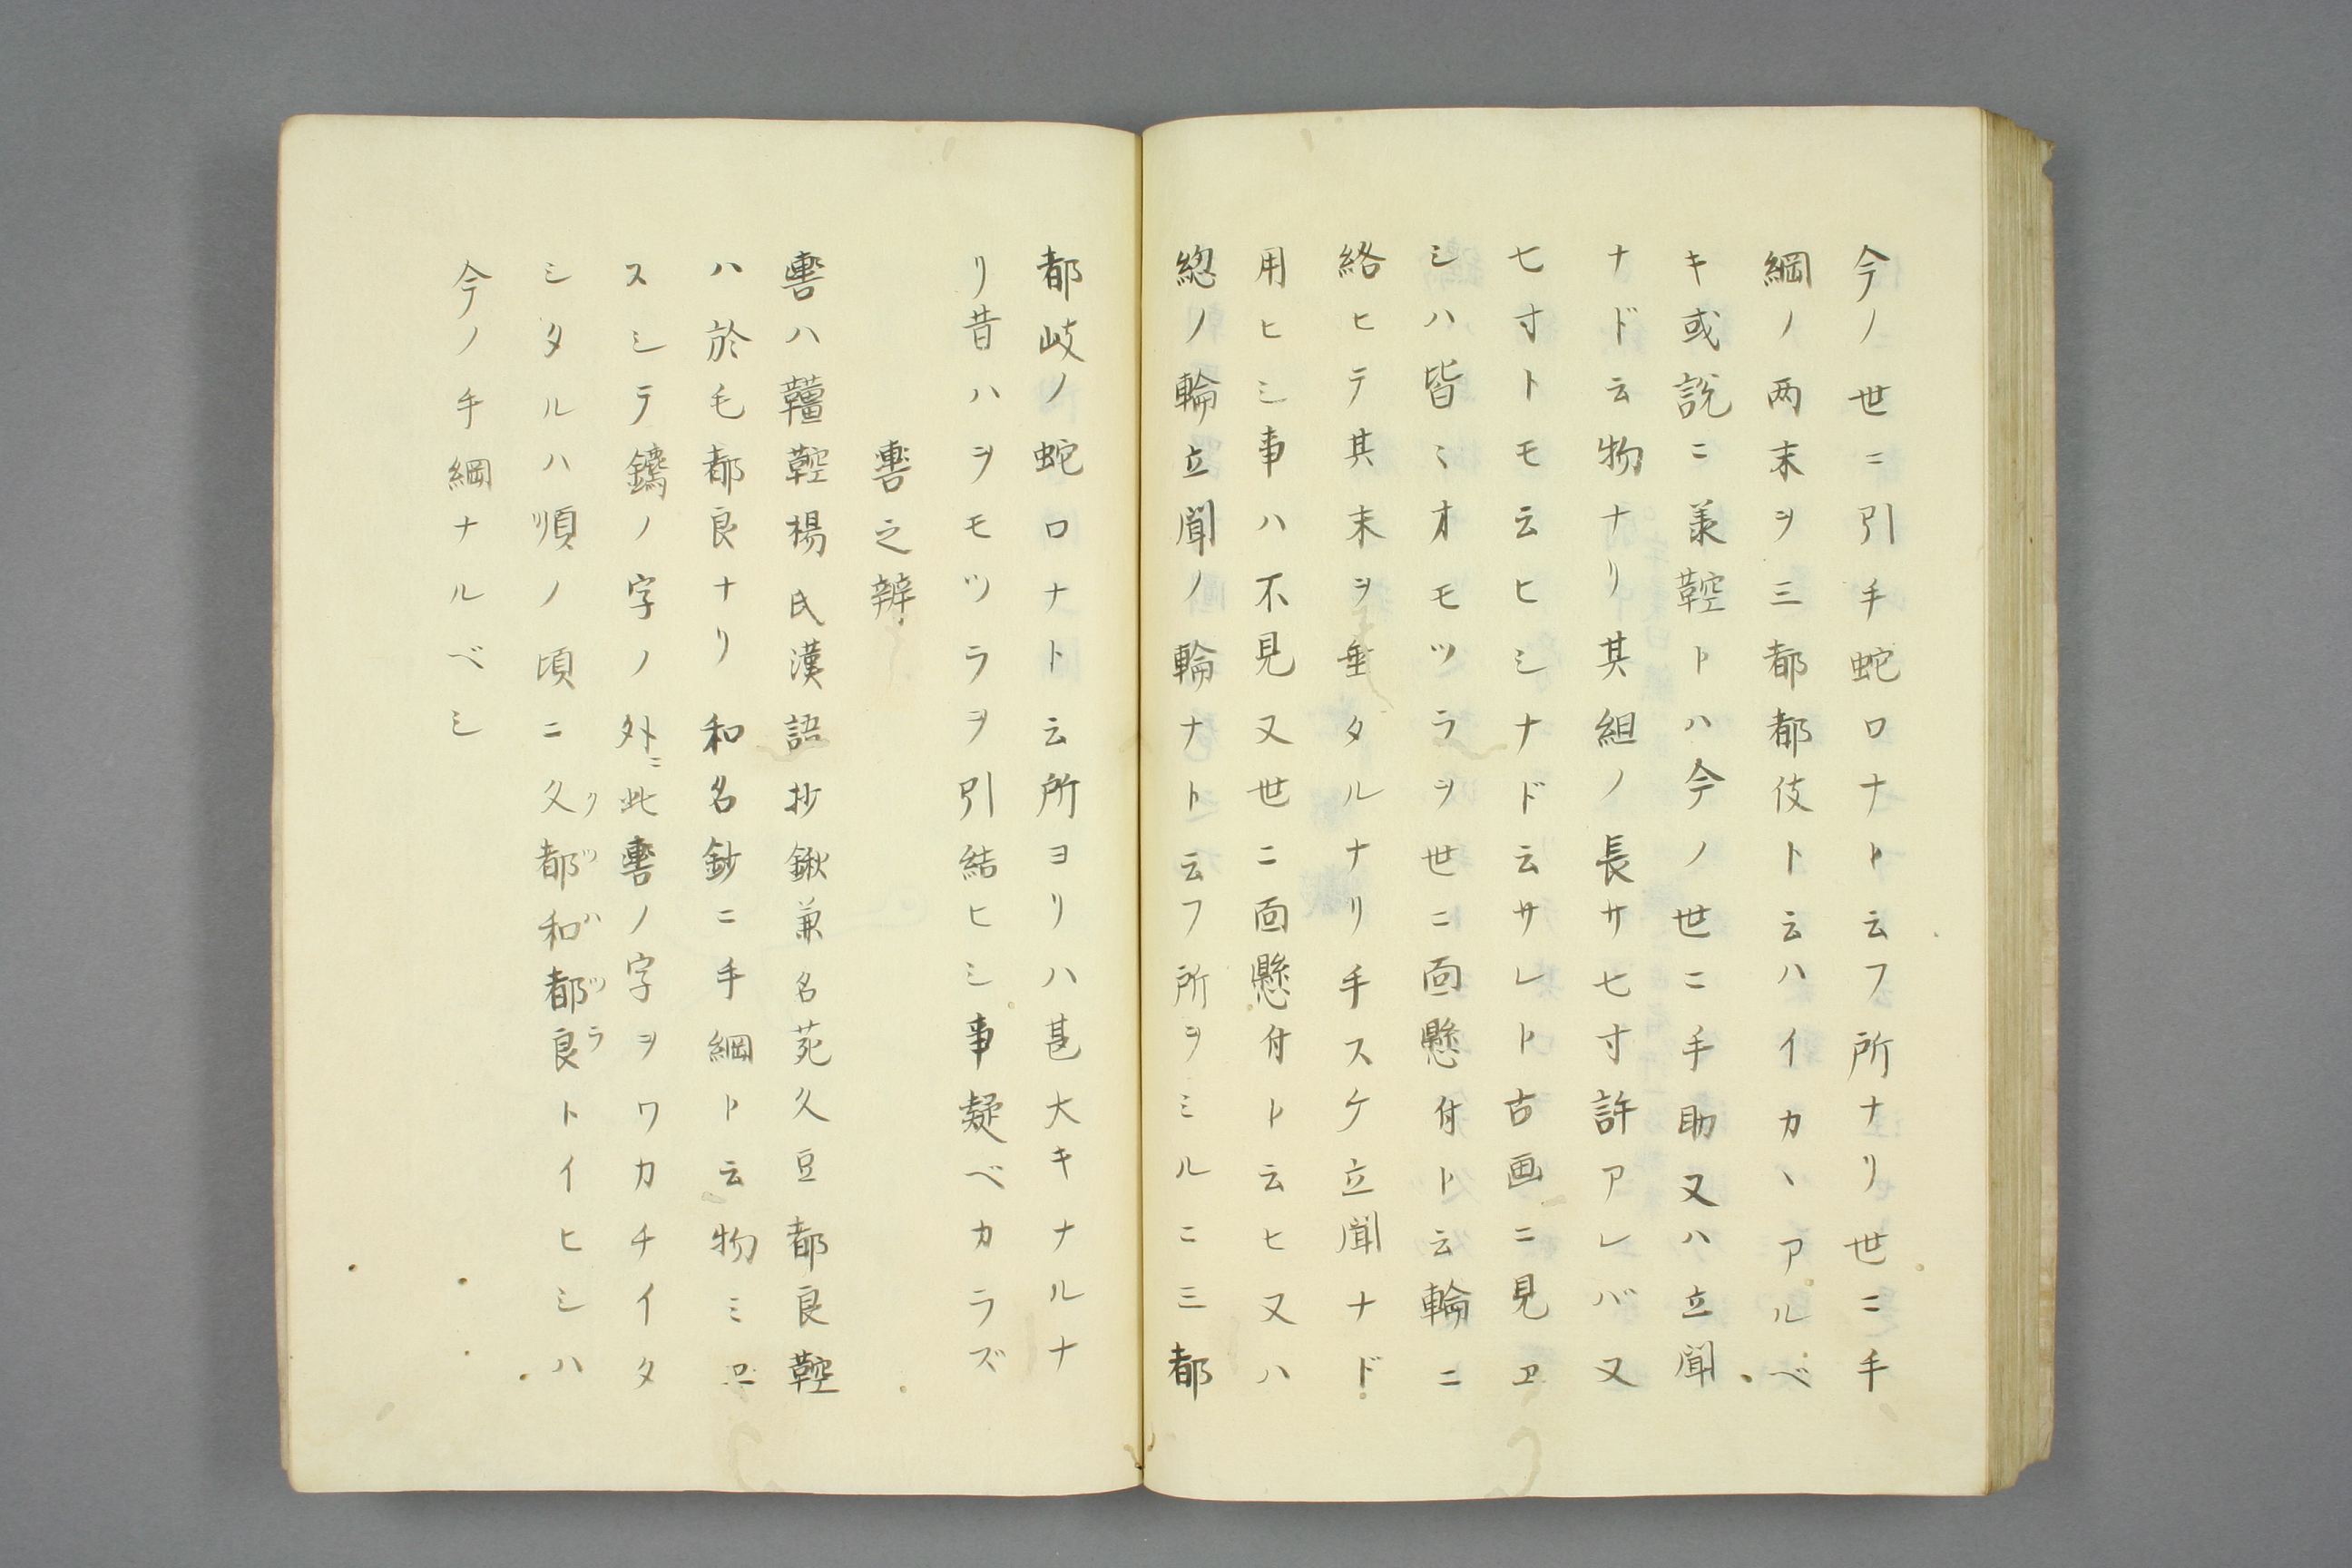 今ノ世ニ引手蛇口ナト云フ所ナリ世ニ手
綱ノ両末ヲ三都都伎ト云ハイカヽアルベ
キ或説ニ羕鞚トハ今ノ世ニ手助又ハ立聞
ナド云物ナリ其組ノ長サ七寸許アレバ又
七寸トモ云ヒシナド云サレト古画ニ見ヱ
シハ皆ミオモツラヲ世ニ面懸付ト云輪ニ
絡ヒテ其末ヲ垂タルナリ手スケ立聞ナド
用ヒシ事ハ不見又世ニ面懸付ト云ヒ又ハ
総ノ輪立聞ノ輪ナト云フ所ヲミルニ三都
都岐ノ蛇口ナト云所ヨリハ甚大キナルナ
リ昔ハヲモツラヲ引結ヒシ事疑ベカラズ
轡之辨
轡ハ韁鞚楊氏漢語抄鍬兼名苑久豆都良鞚
ハ於毛都良ナリ和名鈔ニ手綱ト云物ミエ
スシテ鑣ノ字ノ外ニ此轡ノ字ヲワカチイタ
シタルハ順ノ頃ニ久都和都良トイヒシハ
今ノ手綱ナルベシ